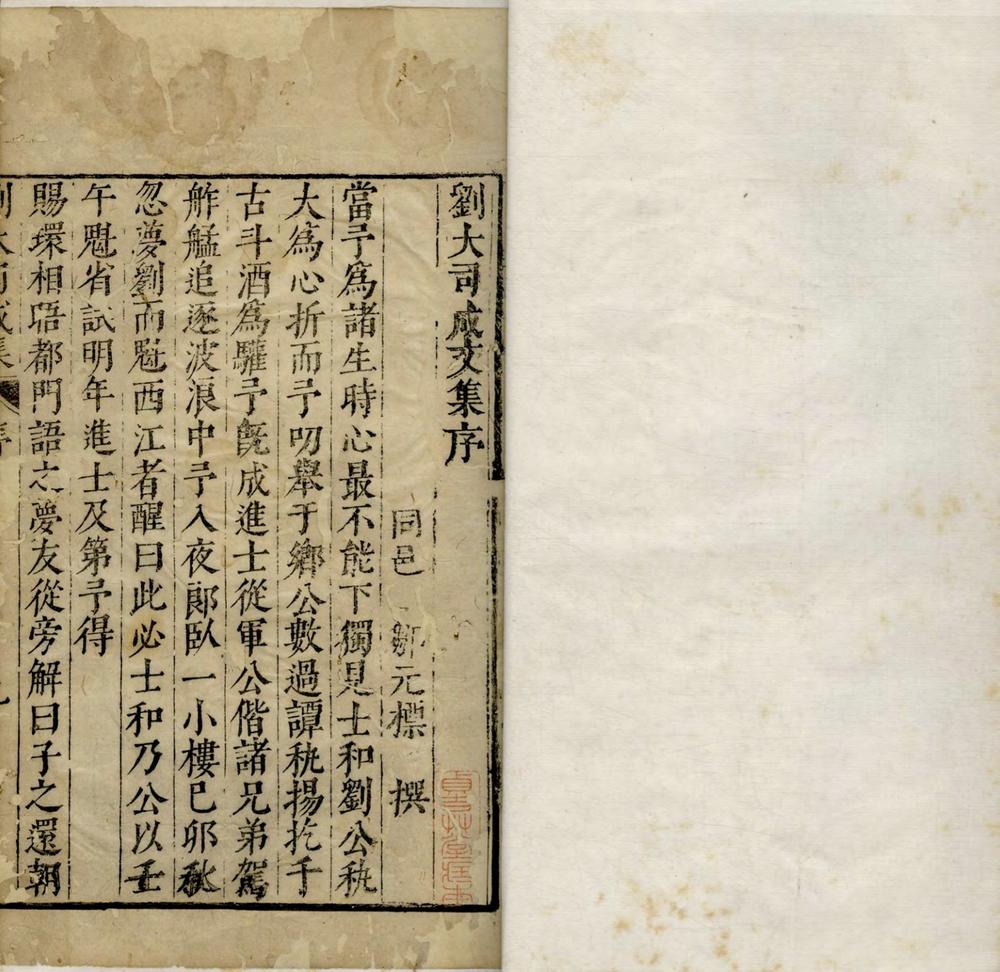 劉大司成文集序
同邑 鄒元標 撰
當予爲諸生時心最不能下獨見士和劉公秇
大爲心折而予叨舉于鄉公數過譚秇揚扢千
古斗酒爲驩予旣成進士從軍公偕諸兄弟駕
舴艋追逐波浪中予入夜郎臥一小樓己卯秋
忽夢劉而魁西江者醒曰此必士和乃公以壬
午魁省試明年進士及第予得
賜環相晤都門語之夢友從旁解曰子之還朝
劉大司成集 序